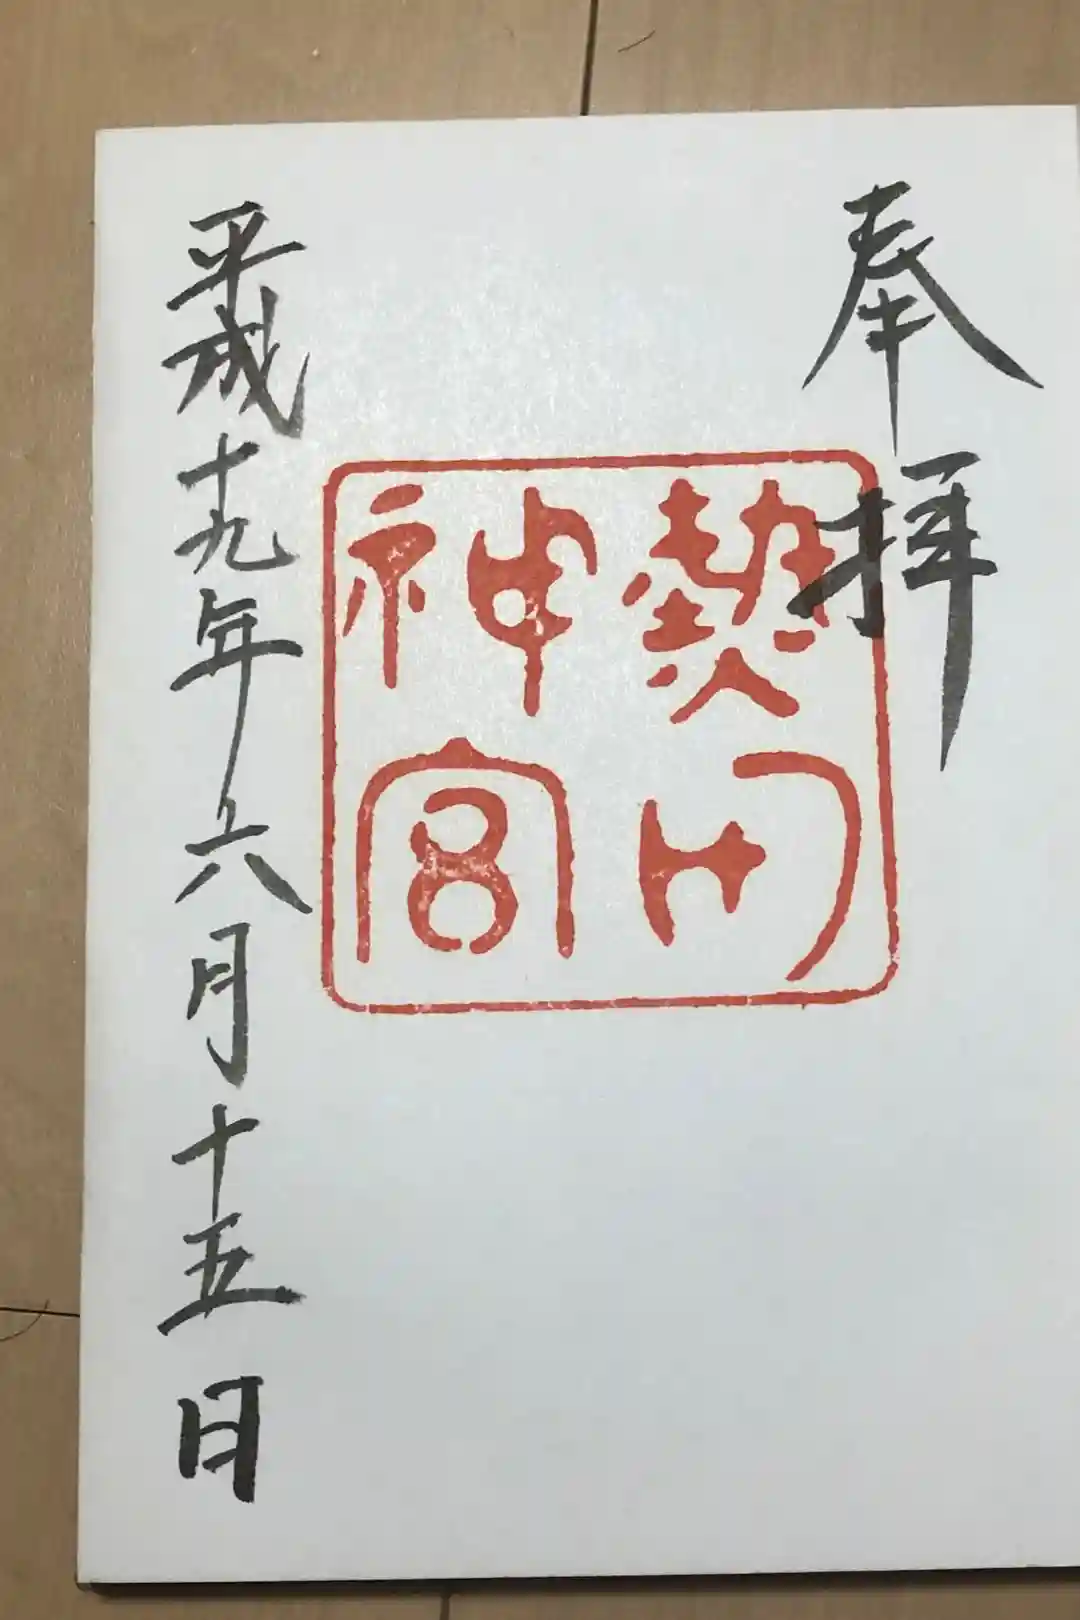 奉拝
熱田
神宮
平成十九年六月十五日